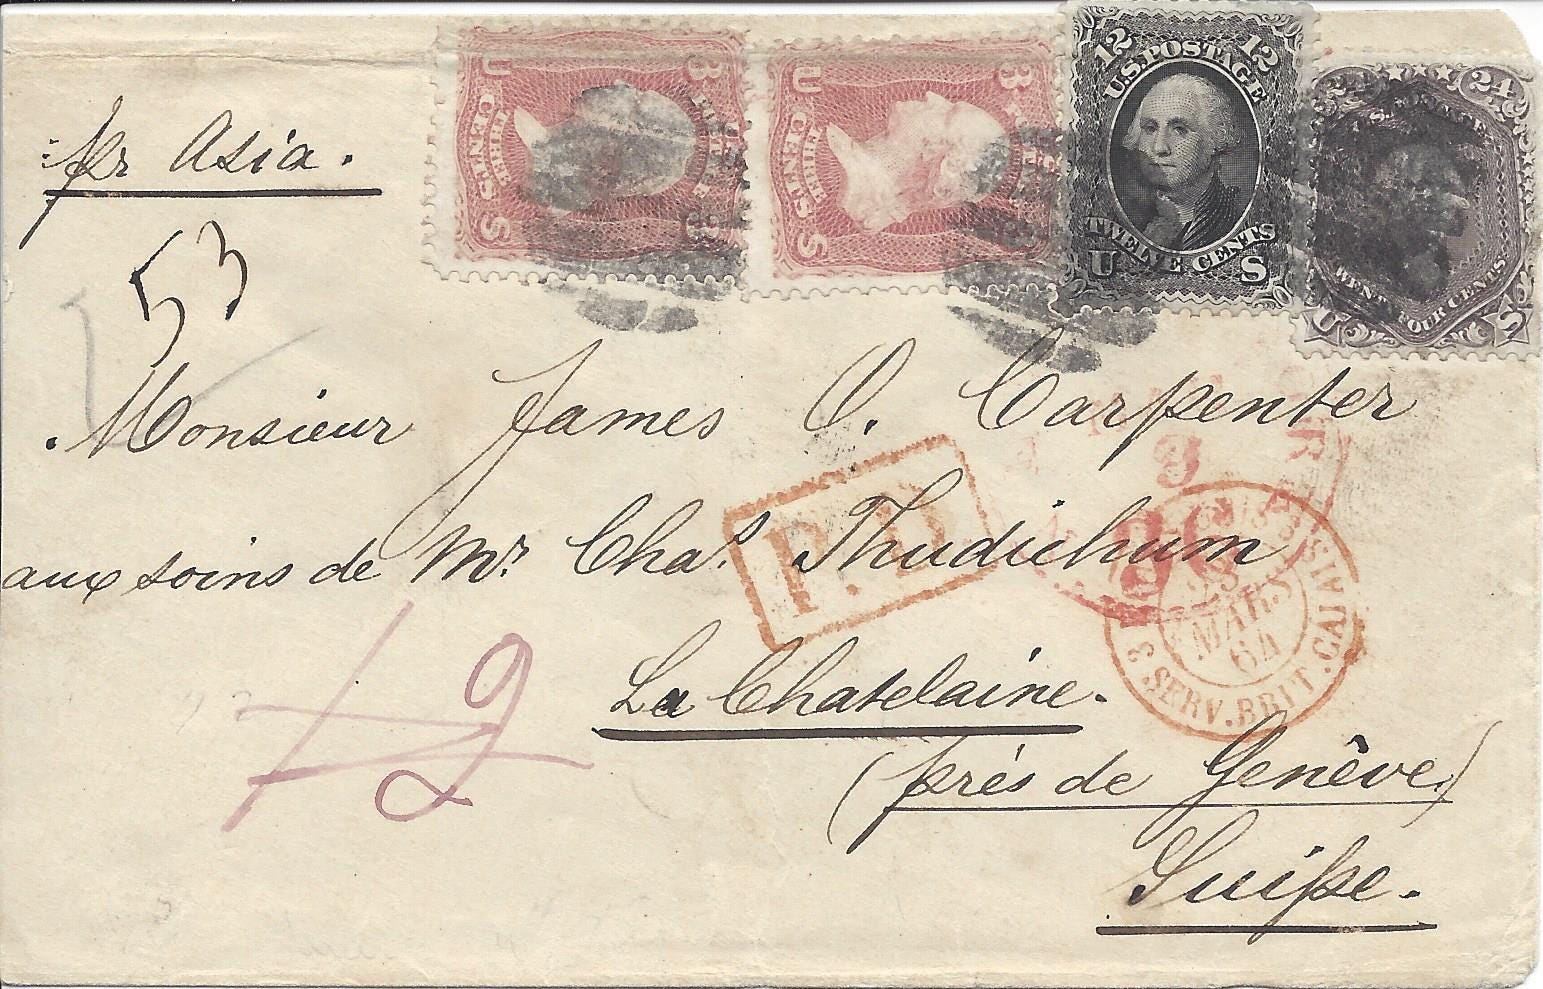 3 U 3 U 12 U.S.POSTAGE 12 24 24
CENTS CENTS
THREE THREE
S S TWELVE CENTS
U S U FOUR CENTS. S
pr Asia.
53
Monsieur James O. Carpenter
aux soins de Mr. Chas. Thudichum
La Chatelaine.
(près de Genève)
Suiſse.
P.D.
3
3 SERV.BRIT.CALAIS
23
MARS
64